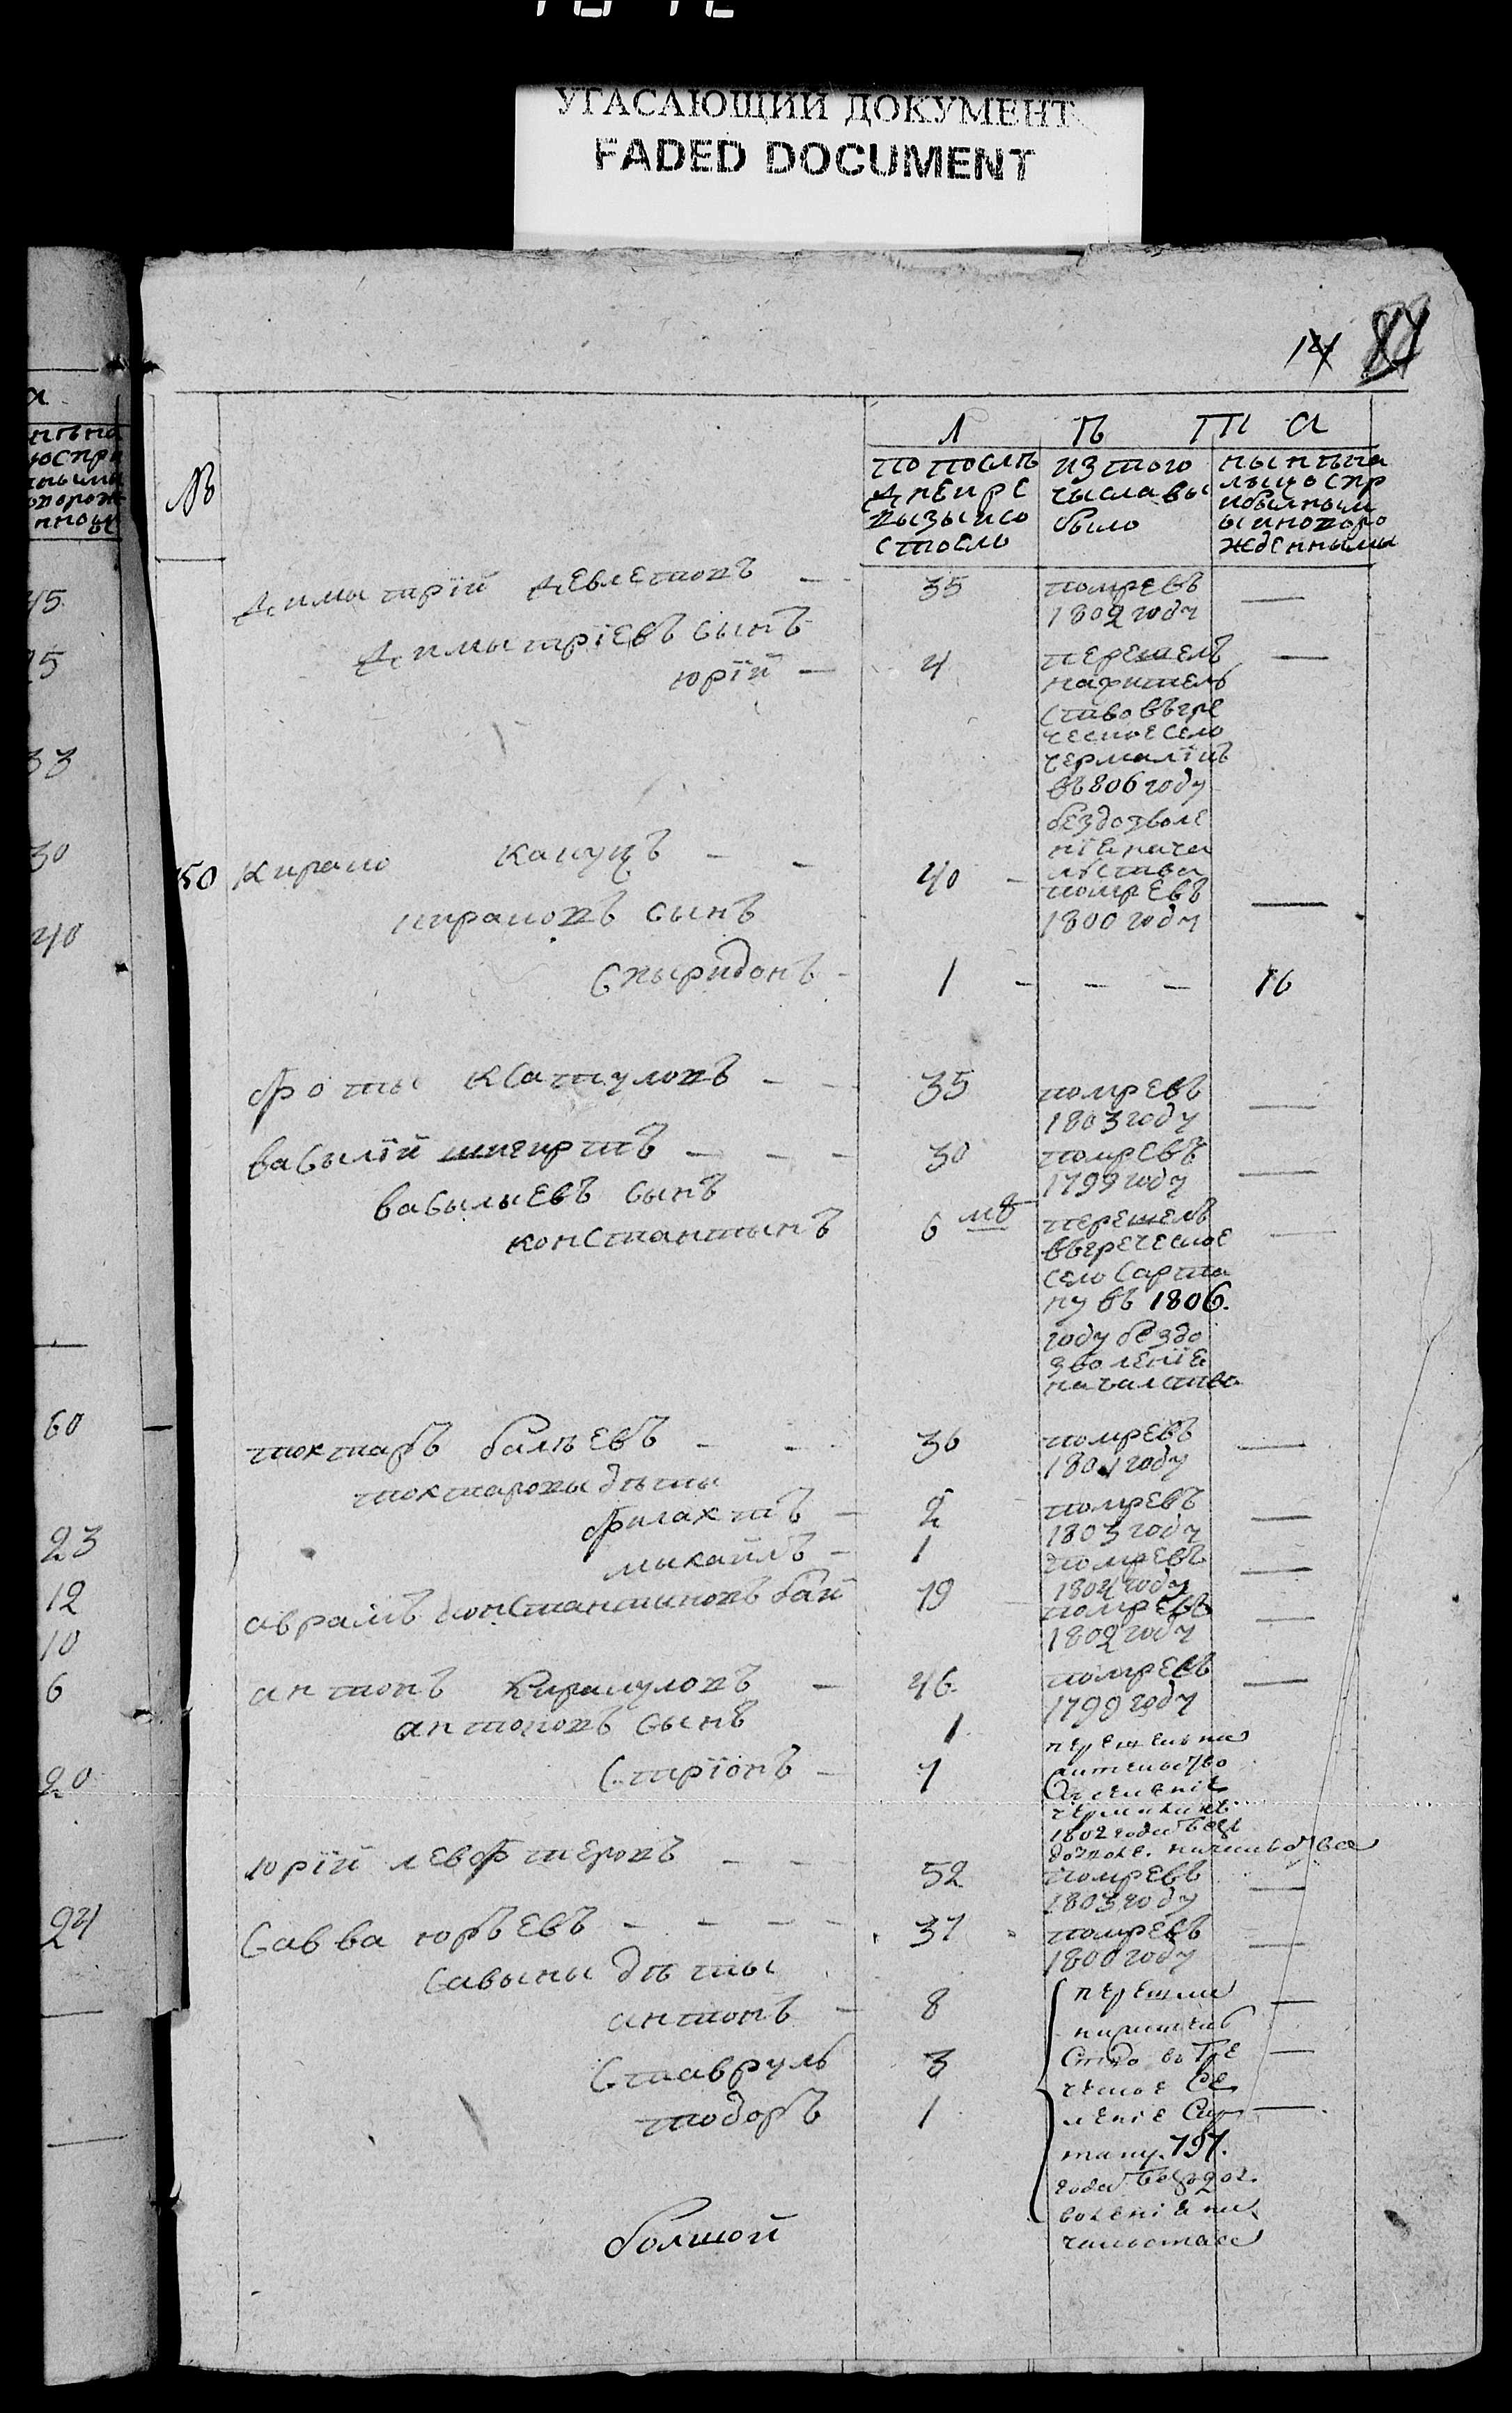 УГАСАЮЩИЙ ДОКУМЕНТ
FADED DOCUMENT
14
№
Л ѣ Т а
попослѣ
дней ре
визыи со
стоело
изтого
числа вы
было
нынѣна
лыцо спр
ибылным
ы иново ро
жденнымы
Димытрїй Девлетовъ — 35 помревъ —
1802 году
Димытрїевъ сынъ
юрїй — 4 перешелъ —
нажител
ство въгре
ческое село
чермалїкъ
въ 806 году
бездозволе
нїе нача
лства
150 Кирано Кануцъ — — 40 — помревъ —
1800 году
кирановъ сынъ
Спыридонъ — 1 — — — 16
Фоты Ксатуловъ — — 35 помревъ —
1803 году
васылїй шигиртъ — — — 30 помревъ —
1799 году
васылыевъ сынъ
константынъ 6 мѣ перешелъ —
въгреческое
село Сарта
ну въ 1806.
году бездо
зволенїе
началства
токтаръ балѣевъ — — 36 помревъ —
1801 году
токтаровы дѣты
филахтъ — 2 помревъ —
1803 году
мыхаилъ — 1 помревъ —
1804 году
аврамъ константиновъ бай 19 помревъ —
1802 году
антонъ Кирануловъ — 46 помревъ —
1799 году
антоновъ сынъ 1
Стрїонъ — 7 перешелъ на
жителство
Селенїе
чермаликъ
1802 года безъ
дозволе. началства
юрїй левфтеровъ — — 52 помревъ —
1803 году
Савва юръевъ — — — — 37 помревъ —
1800 году
Савыны дѣты
антонъ — 8 перешли —
нажител
Ставруль 3 Ство въ Гре —
ческое Се
тодоръ 1 ленїе Сар —
тану. 797.
года бездоз.
воленїе на
чальства
болшой